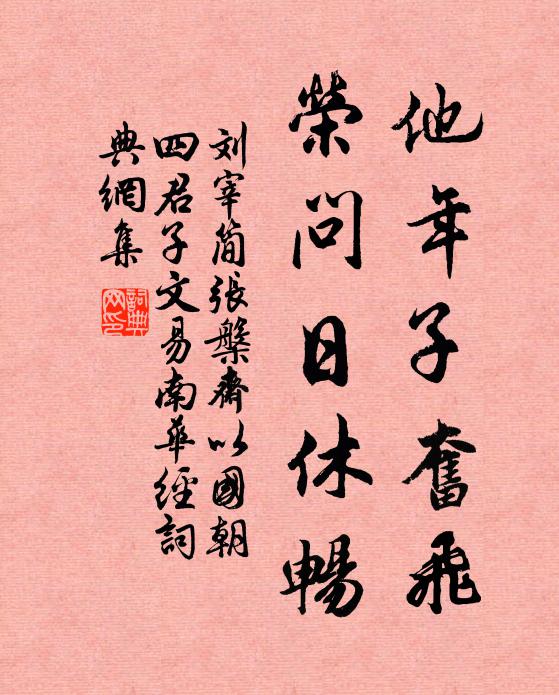 他年子奮飛
榮問日休暢
刘宰简張槃齋以國朝
四君子文易南華經詞
典網集
詞典網印